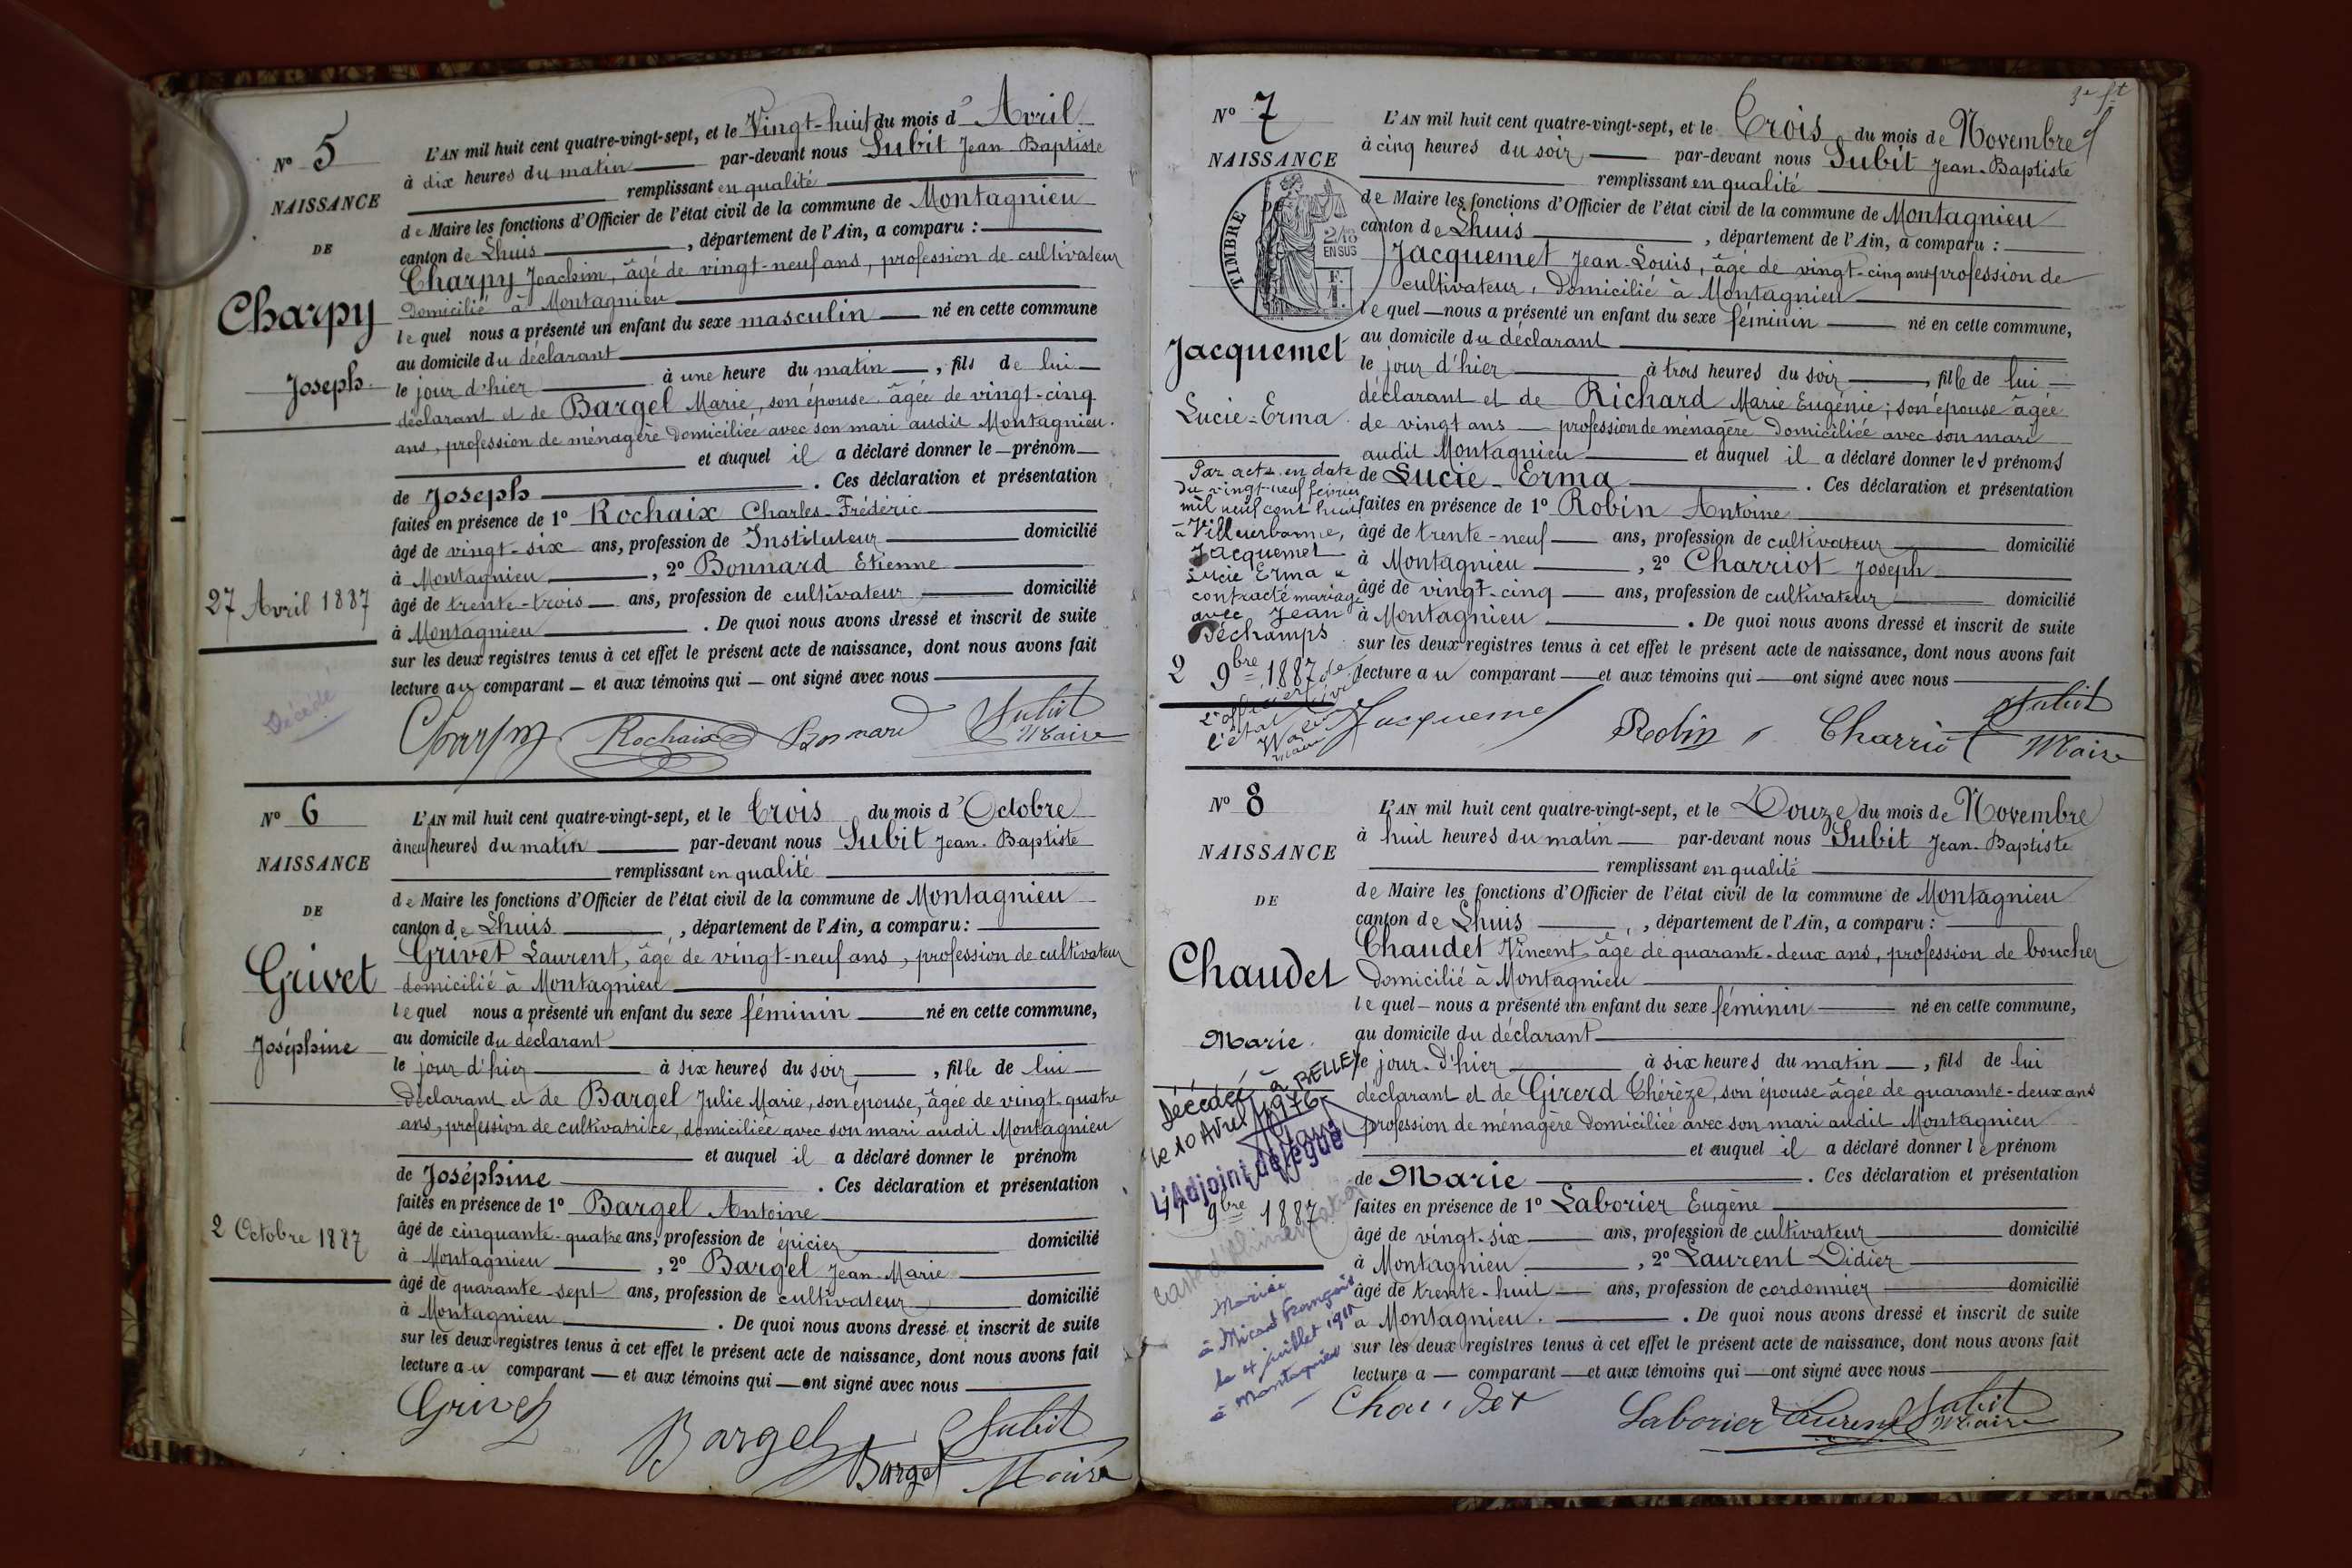 N° 5
NAISSANCE
DE
Charpy
Joseph
27 Avril 1887
Décédé
L'AN mil huit cent quatre-vingt-sept, et le Vingt-huit du mois d'Avril
à dix heures du matin par-devant nous Subit Jean Baptiste
remplissant en qualité
de Maire les fonctions d'Officier de l'état civil de la commune de Montagnieu
canton de Lhuis, département de l'Ain, a comparu :
Charpy Joachim, âgé de vingt-neuf ans, profession de cultivateur
domicilié à Montagnieu
lequel nous a présenté un enfant du sexe masculin né en cette commune
au domicile du déclarant
le jour d'hier à une heure du matin, fils de lui
déclarant et de Bargel Marie, son épouse âgée de vingt-cinq
ans, profession de ménagère domiciliée avec son mari audit Montagnieu.
et auquel il a déclaré donner le prénom
de Joseph. Ces déclaration et présentation
faites en présence de 1° Rochaix Charles-Frédéric
âgé de vingt-six ans, profession de Instituteur domicilié
à Montagnieu, 2° Bonnard Etienne
âgé de trente-trois ans, profession de cultivateur domicilié
à Montagnieu. De quoi nous avons dressé et inscrit de suite
sur les deux registres tenus à cet effet le présent acte de naissance, dont nous avons fait
lecture au comparant et aux témoins qui ont signé avec nous
Charpy Rochaix Bonnard Subit
Maire
N° 6
NAISSANCE
DE
Grivet
Joséphine
2 Octobre 1887
L'AN mil huit cent quatre-vingt-sept, et le Trois du mois d'Octobre
à neuf heures du matin par-devant nous Subit Jean-Baptiste
remplissant en qualité
de Maire les fonctions d'Officier de l'état civil de la commune de Montagnieu
canton de Lhuis, département de l'Ain, a comparu :
Grivet Laurent, âgé de vingt-neuf ans, profession de cultivateur
domicilié à Montagnieu
lequel nous a présenté un enfant du sexe féminin né en cette commune,
au domicile du déclarant
le jour d'hier à six heures du soir, fille de lui
déclarant et de Bargel Julie Marie, son épouse, âgée de vingt-quatre
ans, profession de cultivatrice, domiciliée avec son mari audit Montagnieu
et auquel il a déclaré donner le prénom
de Joséphine. Ces déclaration et présentation
faites en présence de 1° Bargel Antoine
âgé de cinquante-quatre ans, profession de épicier domicilié
à Montagnieu, 2° Bargel Jean-Marie
âgé de quarante-sept ans, profession de cultivateur domicilié
à Montagnieu. De quoi nous avons dressé et inscrit de suite
sur les deux registres tenus à cet effet le présent acte de naissance, dont nous avons fait
lecture au comparant et aux témoins qui ont signé avec nous
Grivet Bargel Subit
Bargel Maire
N° 7
NAISSANCE
TIMBRE
2/10
EN SUS
1 F.
Jacquemet
Lucie-Erma
Par acte en date
du vingt-neuf février
mil neuf cent huit
à Villeurbanne,
Jacquemet
Lucie Erma a
contracté mariage
avec Jean
Déchamps
2 9bre 1887
L'officier de
l'état civil
Maire
L'AN mil huit cent quatre-vingt-sept, et le Trois du mois de Novembre
à cinq heures du soir par-devant nous Subit Jean-Baptiste
remplissant en qualité
de Maire les fonctions d'Officier de l'état civil de la commune de Montagnieu
canton de Lhuis, département de l'Ain, a comparu :
Jacquemet Jean-Louis, âgé de vingt-cinq ans profession de
cultivateur, domicilié à Montagnieu
lequel nous a présenté un enfant du sexe féminin né en cette commune,
au domicile du déclarant
le jour d'hier à trois heures du soir, fille de lui
déclarant et de Richard Marie Eugénie; son épouse âgée
de vingt ans profession de ménagère domiciliée avec son mari
audit Montagnieu et auquel il a déclaré donner les prénoms
de Lucie-Erma. Ces déclaration et présentation
faites en présence de 1° Robin Antoine
âgé de trente-neuf ans, profession de cultivateur domicilié
à Montagnieu, 2° Charriot Joseph
âgé de vingt-cinq ans, profession de cultivateur domicilié
à Montagnieu. De quoi nous avons dressé et inscrit de suite
sur les deux registres tenus à cet effet le présent acte de naissance, dont nous avons fait
lecture au comparant et aux témoins qui ont signé avec nous
Jacquemet Robin Charriot Subit
Maire
N° 8
NAISSANCE
DE
Chaudet
Marie
Décédée à BELLEY
le 10 Avril 1976
L'Adjoint délégué
11 9bre 1887
Mariée
à Micard François
le 4 juillet 1910
à Montagnieu
L'AN mil huit cent quatre-vingt-sept, et le Douze du mois de Novembre
à huit heures du matin par-devant nous Subit Jean-Baptiste
remplissant en qualité
de Maire les fonctions d'Officier de l'état civil de la commune de Montagnieu
canton de Lhuis, département de l'Ain, a comparu :
Chaudet Vincent, âgé de quarante-deux ans, profession de boucher
domicilié à Montagnieu
lequel nous a présenté un enfant du sexe féminin né en cette commune,
au domicile du déclarant
le jour d'hier à six heures du matin, fils de lui
déclarant et de Girerd Thérèze, son épouse âgée de quarante-deux ans
profession de ménagère domiciliée avec son mari audit Montagnieu
et auquel il a déclaré donner le prénom
de Marie. Ces déclaration et présentation
faites en présence de 1° Laborier Eugène
âgé de vingt-six ans, profession de cultivateur domicilié
à Montagnieu, 2° Laurent Didier
âgé de trente-huit ans, profession de cordonnier domicilié
à Montagnieu. De quoi nous avons dressé et inscrit de suite
sur les deux registres tenus à cet effet le présent acte de naissance, dont nous avons fait
lecture a comparant et aux témoins qui ont signé avec nous
Chaudet Laborier Laurent Subit
Maire